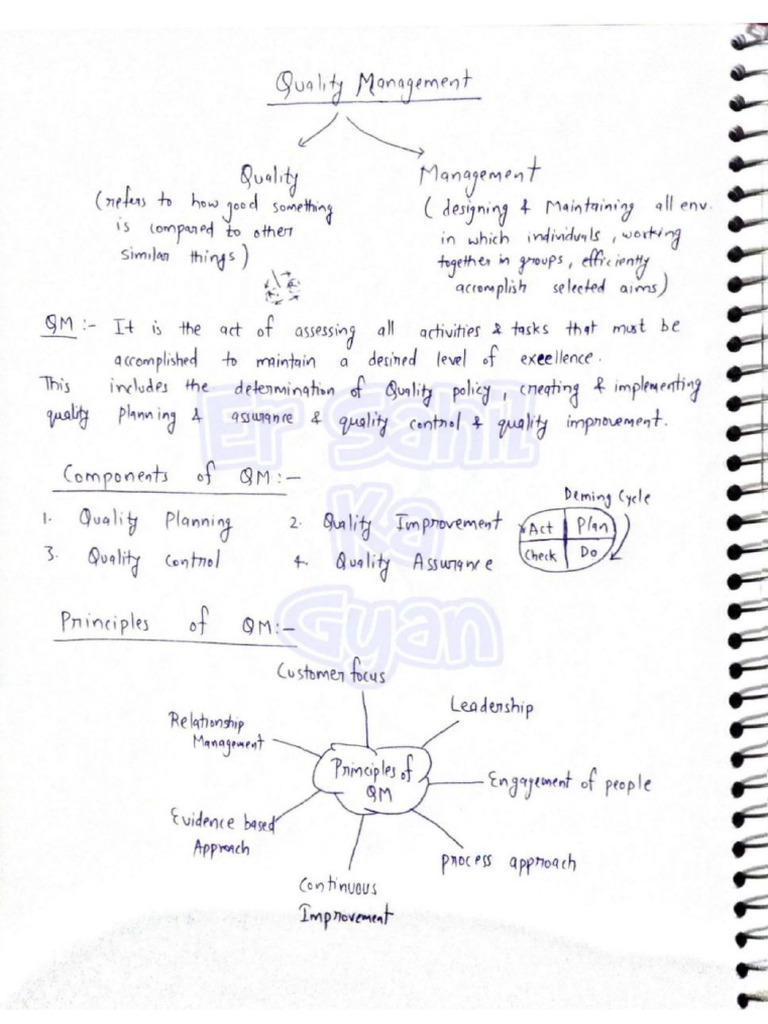 Quality Management
Quality
(refers to how good something
is compared to other
similar things)
Management
(designing & Maintaining all env.
in which individuals, working
together in groups, efficiently
accomplish selected aims)
QM :- It is the act of assessing all activities & tasks that must be
accomplished to maintain a desired level of excellence.
This includes the determination of Quality policy, creating & implementing
quality planning & assurance & quality control & quality improvement.
Er Sahil
Ka
Gyan
Components of QM :-
1. Quality Planning 2. Quality Improvement
3. Quality Control 4. Quality Assurance
Deming Cycle
Act Plan
Check Do
Principles of QM :-
Customer focus
Leadership
Relationship
Management
Principles of
QM
Engagement of people
Evidence based
Approach
process approach
Continuous
Improvement